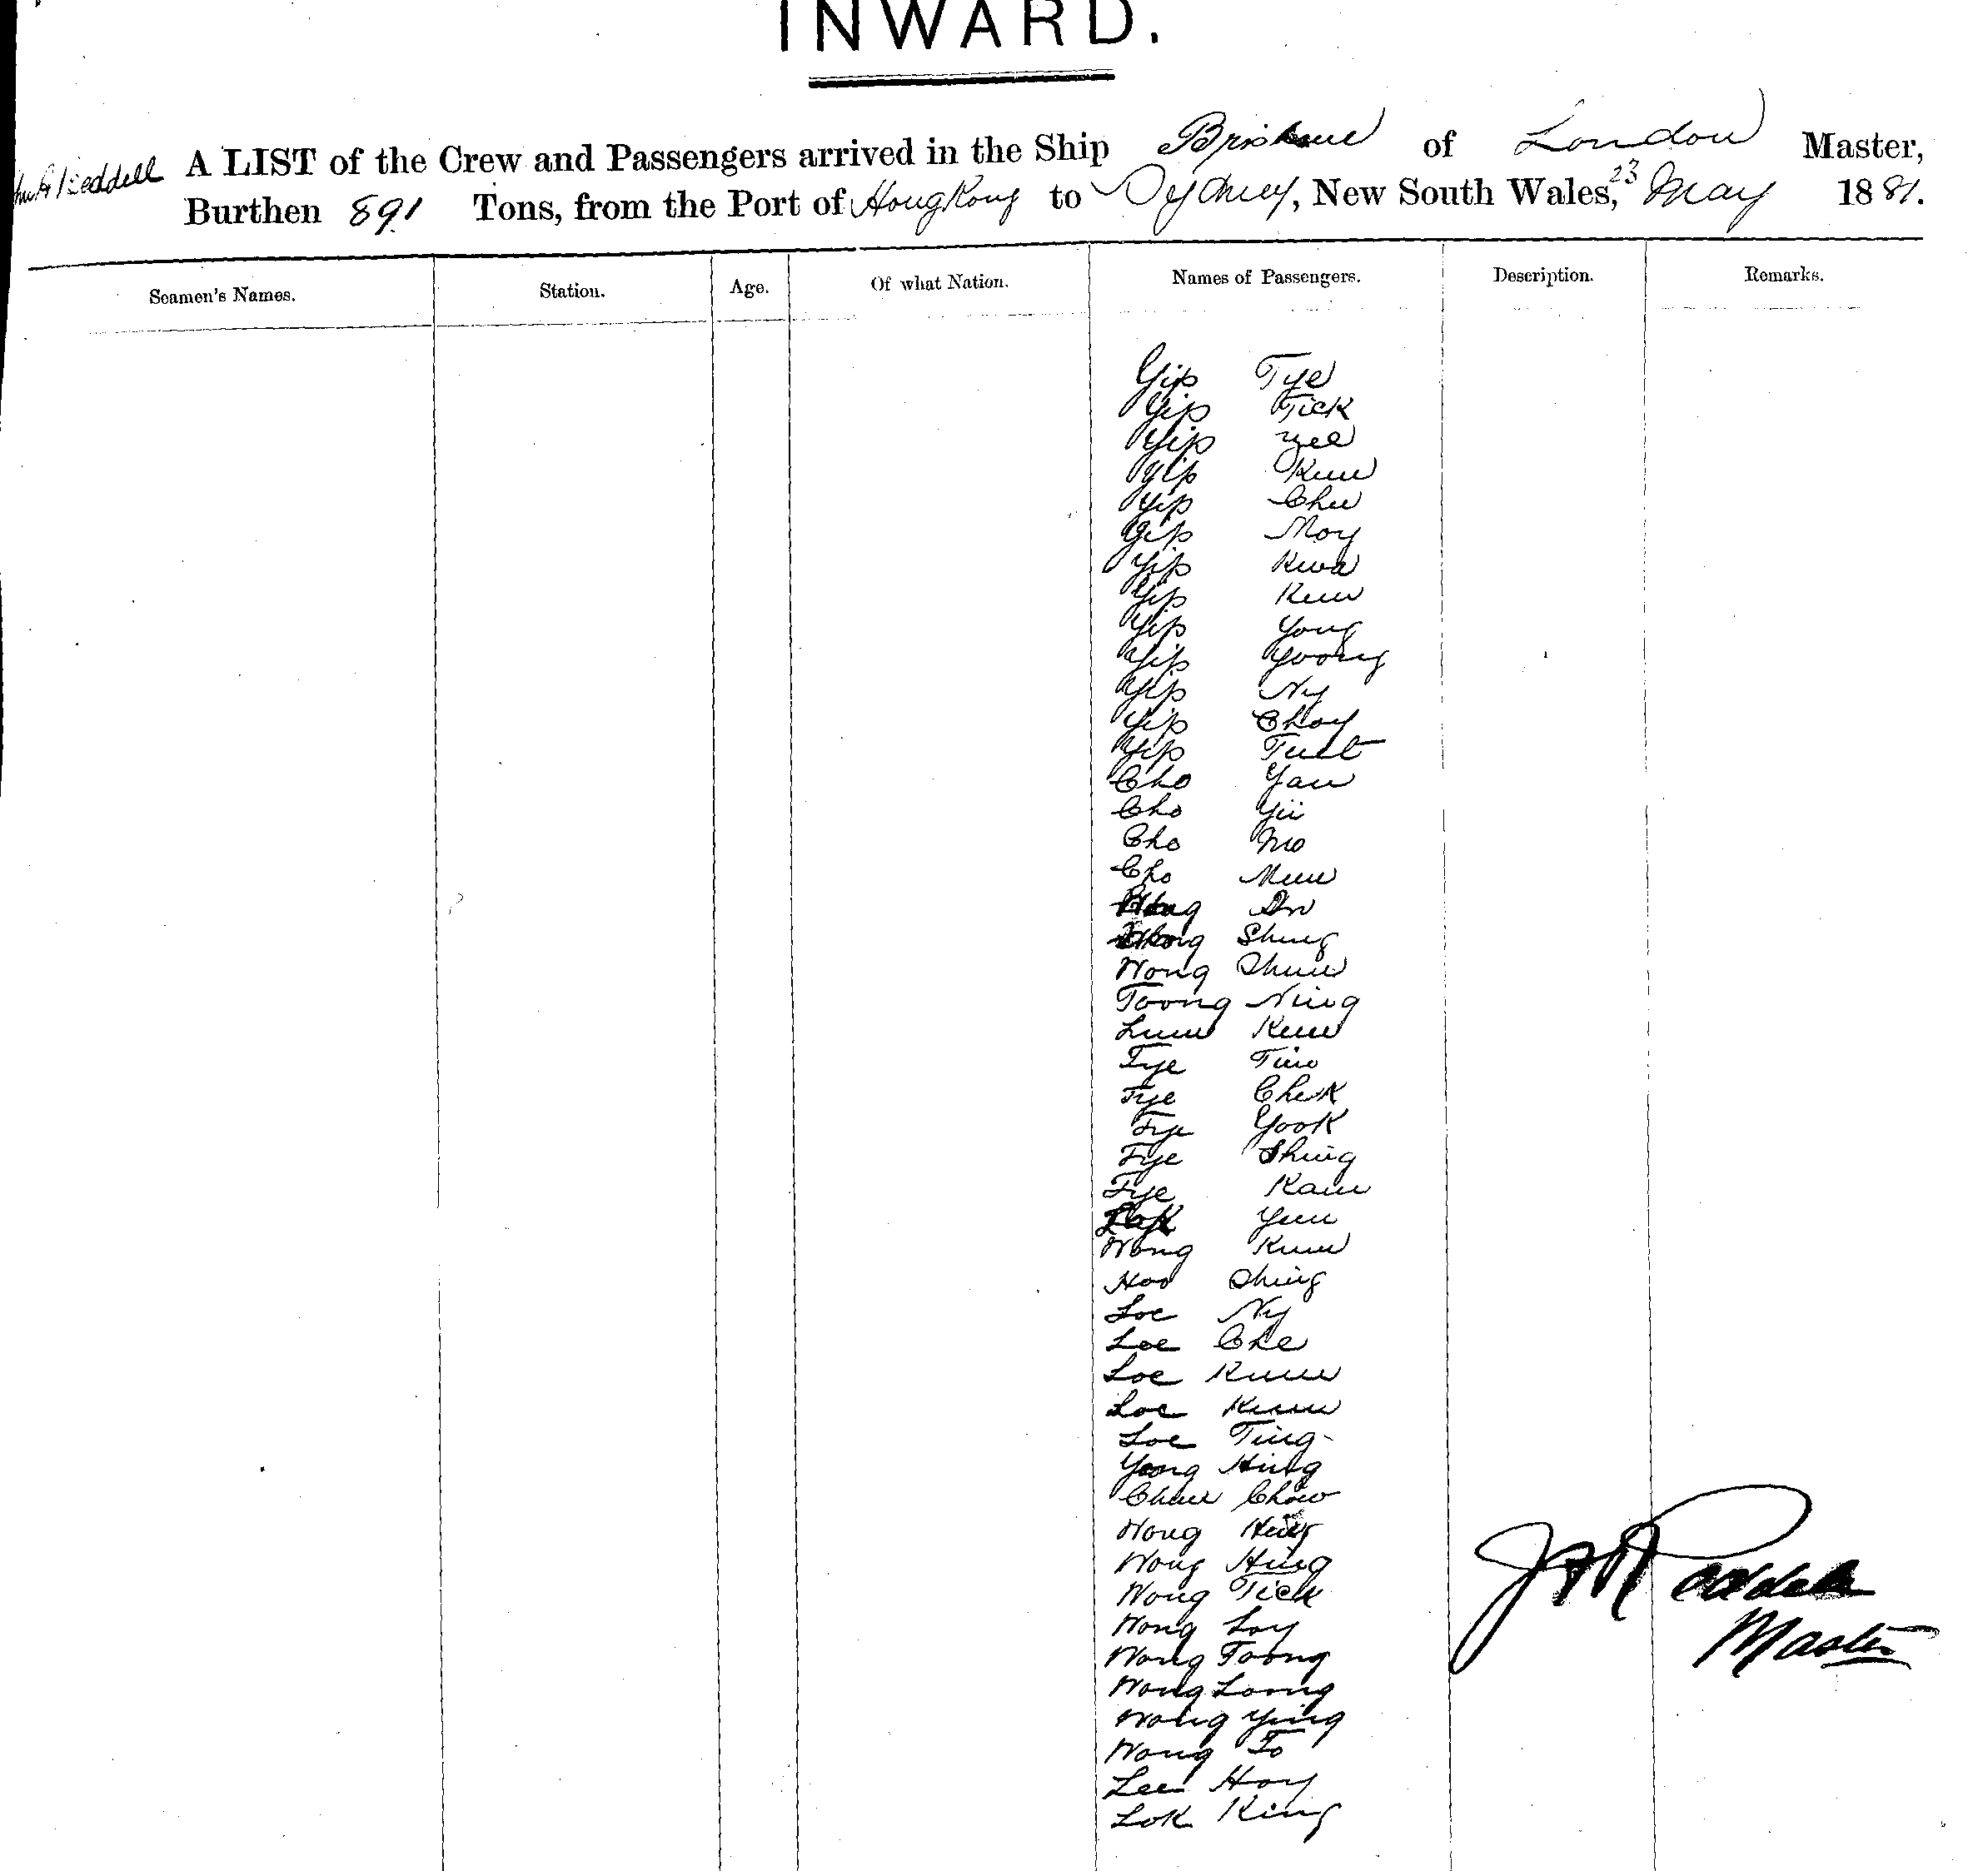 INWARD.
A LIST of the Crew and Passengers arrived in the Ship Brisbane of London Master,
Burthen 891 Tons, from the Port of HongKong to Sydney, New South Wales, 23 May 1881.
Seamen's Names. Station. Age. Of what Nation. Names of Passengers. Description. Remarks.
Yip Tye
Yip Tick
Yip Yee
Yip
Yip
Yip Moy
Yip Kwa
Yip
Yip Yong
Yip Yoong
Yip Ny
Yip Choy
Yip
Cho Yan
Cho
Cho
Cho
Shing
Wong
Toong Ning
Tye
Tye Chek
Tye Yook
Tye Shing
Tye Kam
Wong
Hoo Shing
Loe Ny
Loe Che
Loe
Loe
Loe Ting
Yong Hing
Chow
Wong
Wong Hing
Wong Tick
Wong Loy
Master
Wong Toong
Wong Loong
Wong Ying
Wong To
Lee Hoy
Lok King